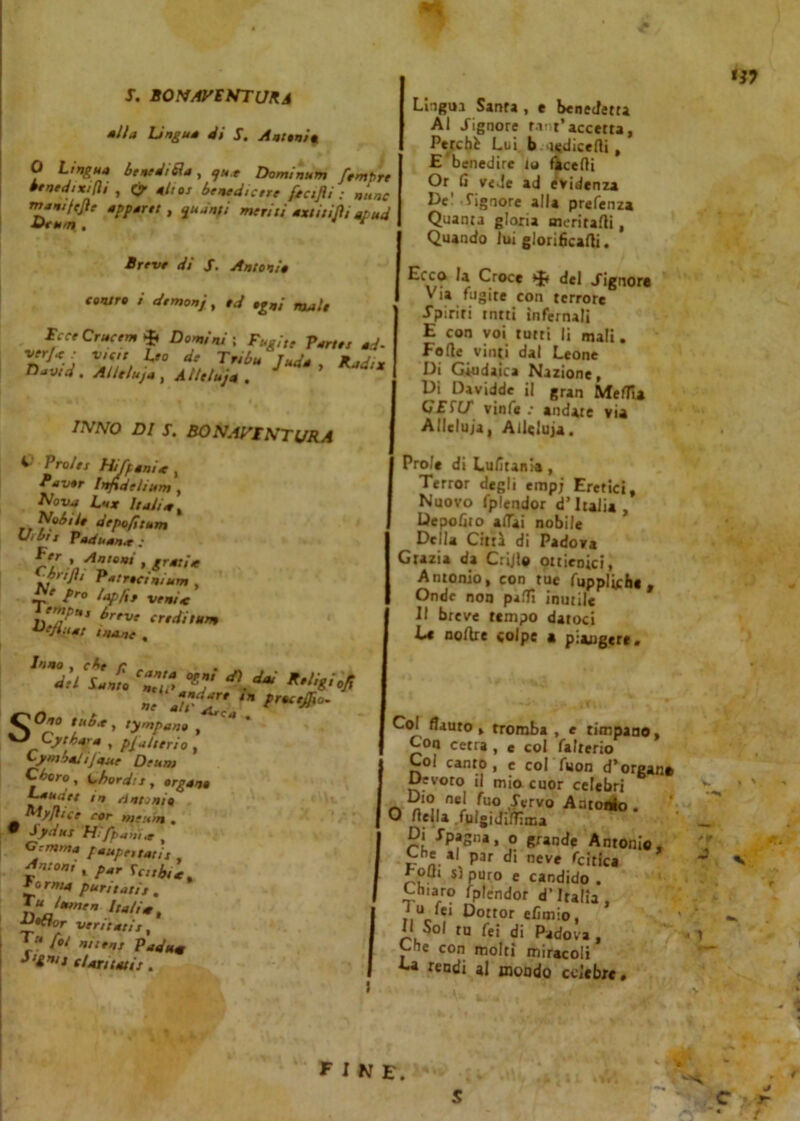 137
S. BONAVENTURA
alla Lingua di S. Antonio
O Lingua benedicta, quæ Dominum semper
benedixisti, & alios benedicere fecisti: nunc
manifeste apparet, quanti meriti extitisti apud
Deum.
Breve di S. Antonio
contro i demonj, ed ogni male
Ecce Crucem ✠ Domini; Fugite Partes ad-
versæ: vicit Leo de Tribu Juda, Radix
David. Alleluja, Alleluja.
INNO DI S. BONAVENTURA
Proles Hispaniæ,
Pavor Infidelium,
Nova Lux Italiæ,
Nobile depositum
Urbis Paduanæ:
Fer, Antoni, gratiæ
Christi Patrocinium,
Ne pro lapsis veniæ
Tempus breve creditum
Defluat inane.
Inno, che si canta ogni dì dai Religiosi
del Santo nell' andare in processio-
ne all' Arca.
SOno tubæ, tympano,
Cythara, psalterio,
Cymbalisque Deum
Choro, Chordis, organo
Laudet in Antonio
Mystice cor meum.
Sydus Hispaniæ,
Gemma paupertatis,
Antoni, par Scithiæ,
Forma puritatis.
Tu lumen Italiæ,
Doctor veritatis,
Tu sol nitens Paduæ
Signis claritatis.
Lingua Santa, e benedetta
Al Signore tant' accetta,
Perchè Lui benedicesti,
E benedire io facesti
Or si vede ad evidenza
De! Signore alla presenza
Quanta gloria meritasti,
Quando lui glorificasti.
Ecco la Croce ✠ del Signore
Via fugite con terrore
Spiriti tutti infernali
E con voi tutti li mali.
Foste vinti dal Leone
Di Giudaica Nazione,
Di Davidde il gran Messia
GESU' vinse: andate via
Alleluja, Alleluja.
Prole di Lusitania,
Terror degli empj Eretici,
Nuovo splendor d'Italia,
Deposito assai nobile
Della Città di Padova
Grazia da Cristo ottienici,
Antonio, con tue suppliche,
Onde non passi inutile
Il breve tempo datoci
Le nostre colpe a piangere.
Col flauto, tromba, e timpano,
Con cetra, e col salterio
Col canto, e col suon d'organo
Devoto il mio cuor celebri
Dio nel suo Servo Antonio.
O stella fulgidissima
Di Spagna, o grande Antonio,
Che al par di neve scitica
Fosti sì puro e candido.
Chiaro splendor d'Italia,
Tu sei Dottor esimio,
Il Sol tu sei di Padova,
Che con molti miracoli
La rendi al mondo celebre.
FINE.
S